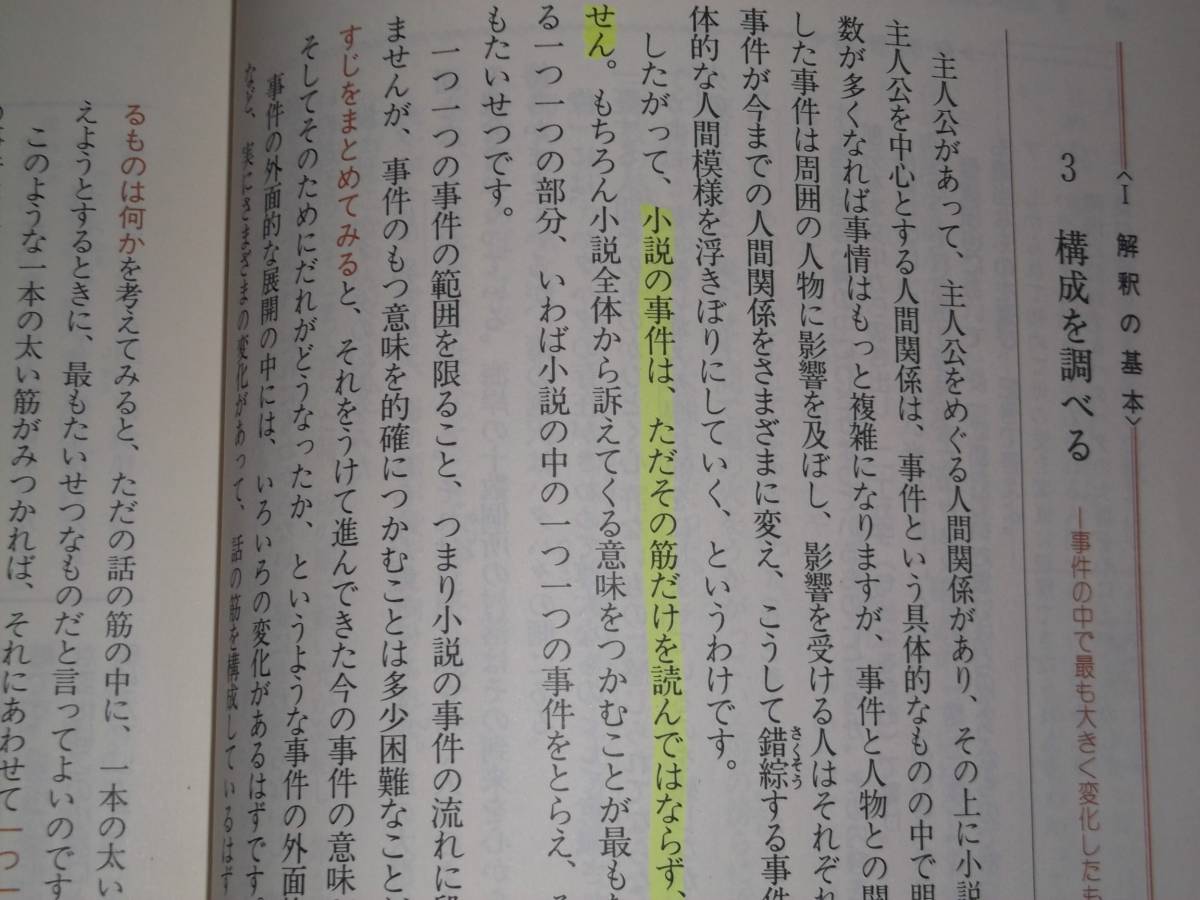 〈Ⅰ 解釈の基本〉
3 構成を調べる
―事件の中で最も大きく変化したも
主人公があって、主人公をめぐる人間関係があり、その上に小説
主人公を中心とする人間関係は、事件という具体的なものの中で明
数が多くなれば事情はもっと複雑になりますが、事件と人物との関
した事件は周囲の人物に影響を及ぼし、影響を受ける人はそれぞれ
事件が今までの人間関係をさまざまに変え、こうして錯綜する事件
さくそう
体的な人間模様を浮きぼりにしていく、というわけです。
したがって、小説の事件は、ただその筋だけを読んではならず、
せん。もちろん小説全体から訴えてくる意味をつかむことが最も
る一つ一つの部分、いわば小説の中の一つ一つの事件をとらえ、
もたいせつです。
一つ一つの事件の範囲を限ること、つまり小説の事件の流れに段
ませんが、事件のもつ意味を的確につかむことは多少困難なこと
すじをまとめてみると、それをうけて進んできた今の事件の意味
そしてそのためにだれがどうなったか、というような事件の外面
事件の外面的な展開の中には、いろいろの変化があるはずです。
など、実にさまざまの変化があって、話の筋を構成しているはず
るものは何かを考えてみると、ただの話の筋の中に、一本の太い
えようとするときに、最もたいせつなものだと言ってよいのです
このような一本の太い筋がみつかれば、それにあわせて一つ一